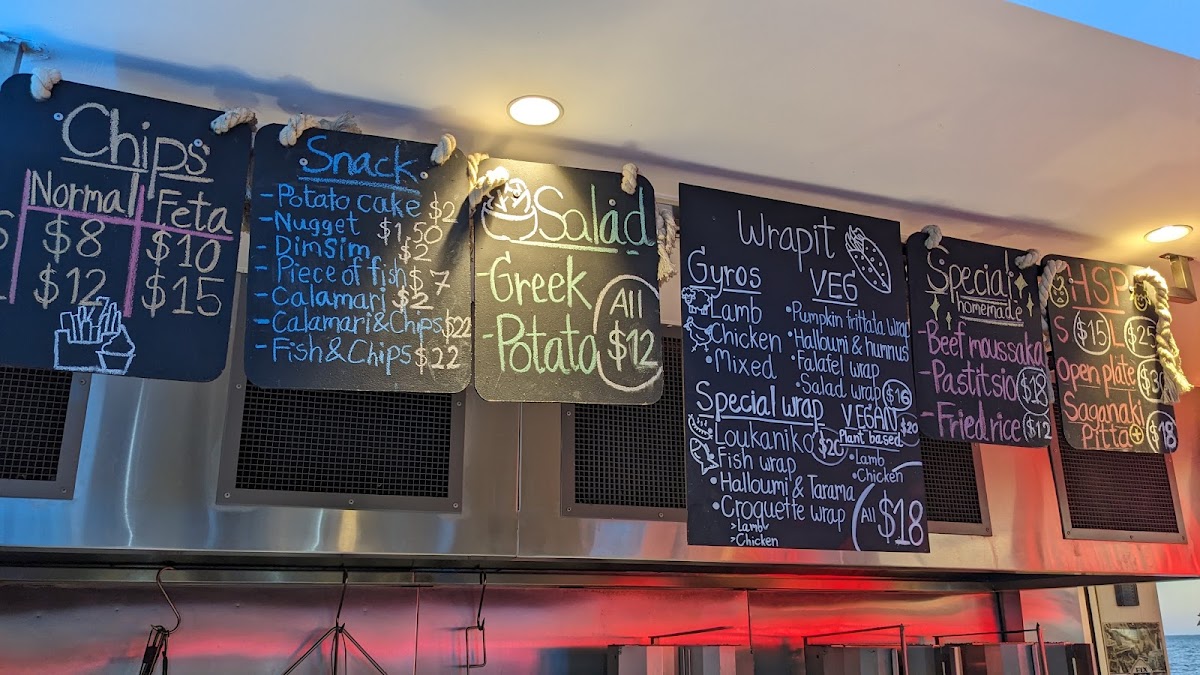 Chips
Normal Feta
S $8 $10
$12 $15
Snack
- Potato cake $2
- Nugget $1.50
- DimSim $2
- Piece of fish $7
- Calamari $2
- Calamari & Chips $22
- Fish & Chips $22
Salad
- Greek
- Potato
All $12
Wrapit
Gyros
Lamb
Chicken
• Mixed
VEG
• Pumpkin frittata wrap
• Halloumi & humus
• Falafel wrap
• Salad wrap $16
Special wrap
Loukaniko $20
• Fish wrap
• Halloumi & Tarama
• Croquette wrap
> Lamb
> Chicken
All $18
VEGAN $20
Plant based
• Lamb
• Chicken
Special
homemade
- Beef moussaka
- Pastitsio $18
- Fried rice $12
HSP
S $15 L $25
Open plate $30
Saganaki
Pitta + $18